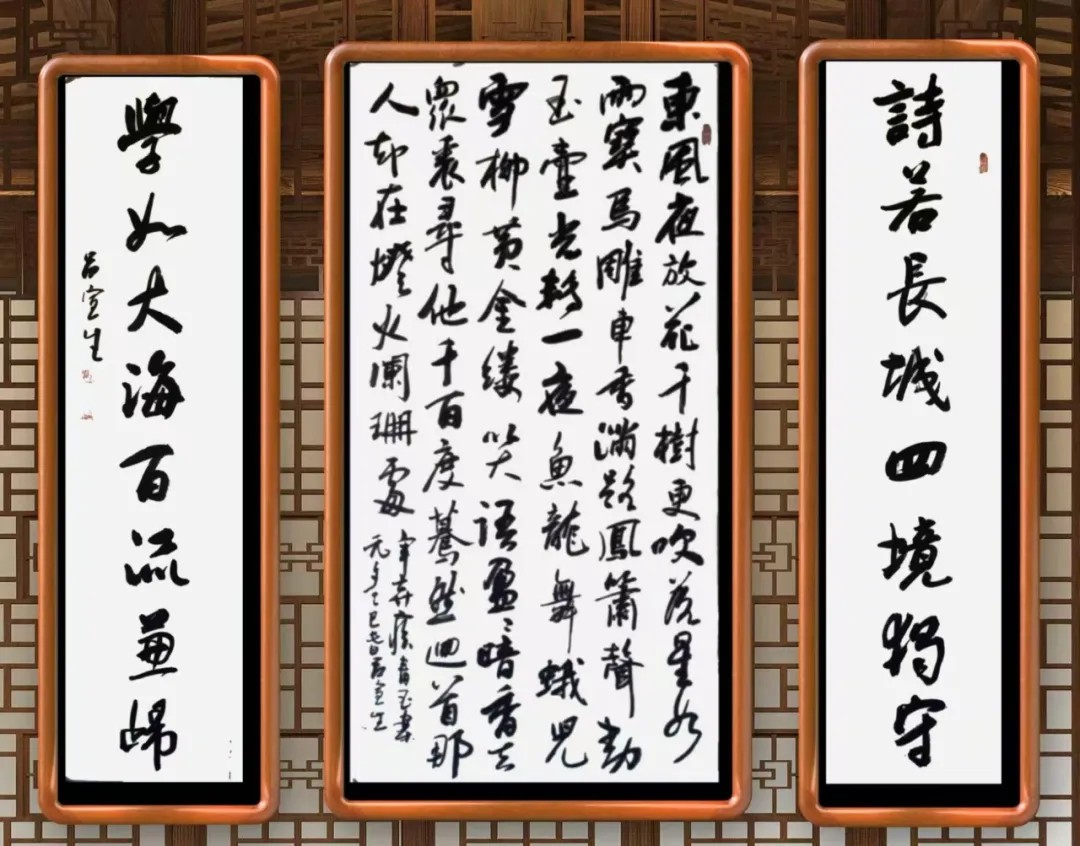 詩若長城四境獨守
東風夜放花千樹更吹落星如
雨寶馬雕車香滿路鳳簫聲動
玉壺光轉一夜魚龍舞蛾兒
雪柳黄金縷笑語盈〻暗香去
眾裏尋他千百度驀然迴首那
人却在燈火闌珊處
辛弃疾青玉案
元夕乙巳春吕宣生
學如大海百流兼歸
吕宣生